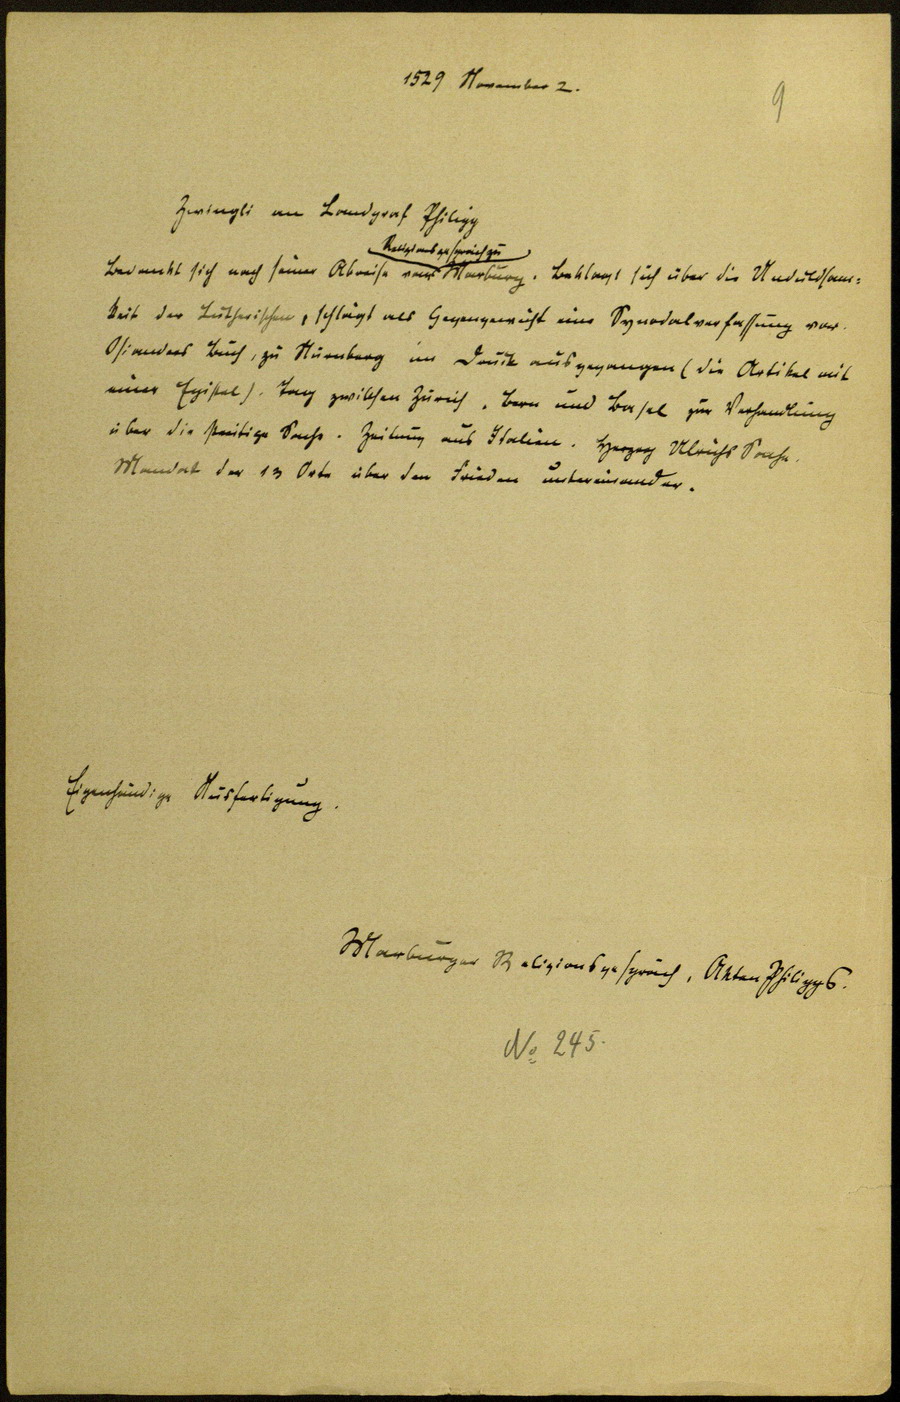 1529 November 2.
9
Zwingli an Landgraf Philipp
Religionsgespräch zu
Bedankt sich nach seiner Abreise vom Marburg. Beklagt sich über die Unduldsam-
keit der Lutherischen, schlägt als Gegengewicht eine Synodalverfassung vor.
Osianders Buch, zu Nürnberg im Druck ausgegangen (die Artikel mit
einer Epistel). Tag zwischen Zürich, Bern und Basel zur Verhandlung
über die streitige Sache. Zeitung aus Italien. Herzog Ulrichs Sache.
Mandat der 13 Orte über den Frieden untereinander.
Eigenhändige Ausfertigung.
Marburger Religionsgespräch, Akten Philipps.
No 245.